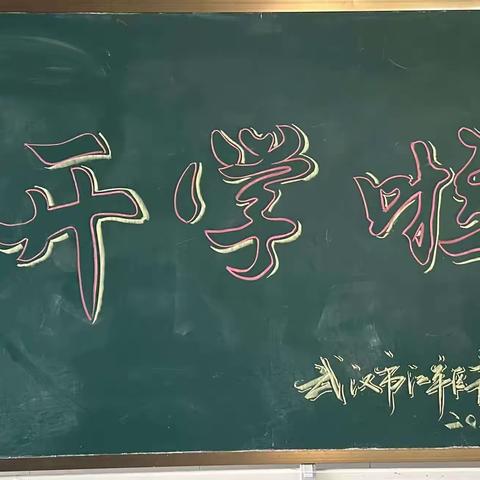 开学啦
武汉市江夏区
二0